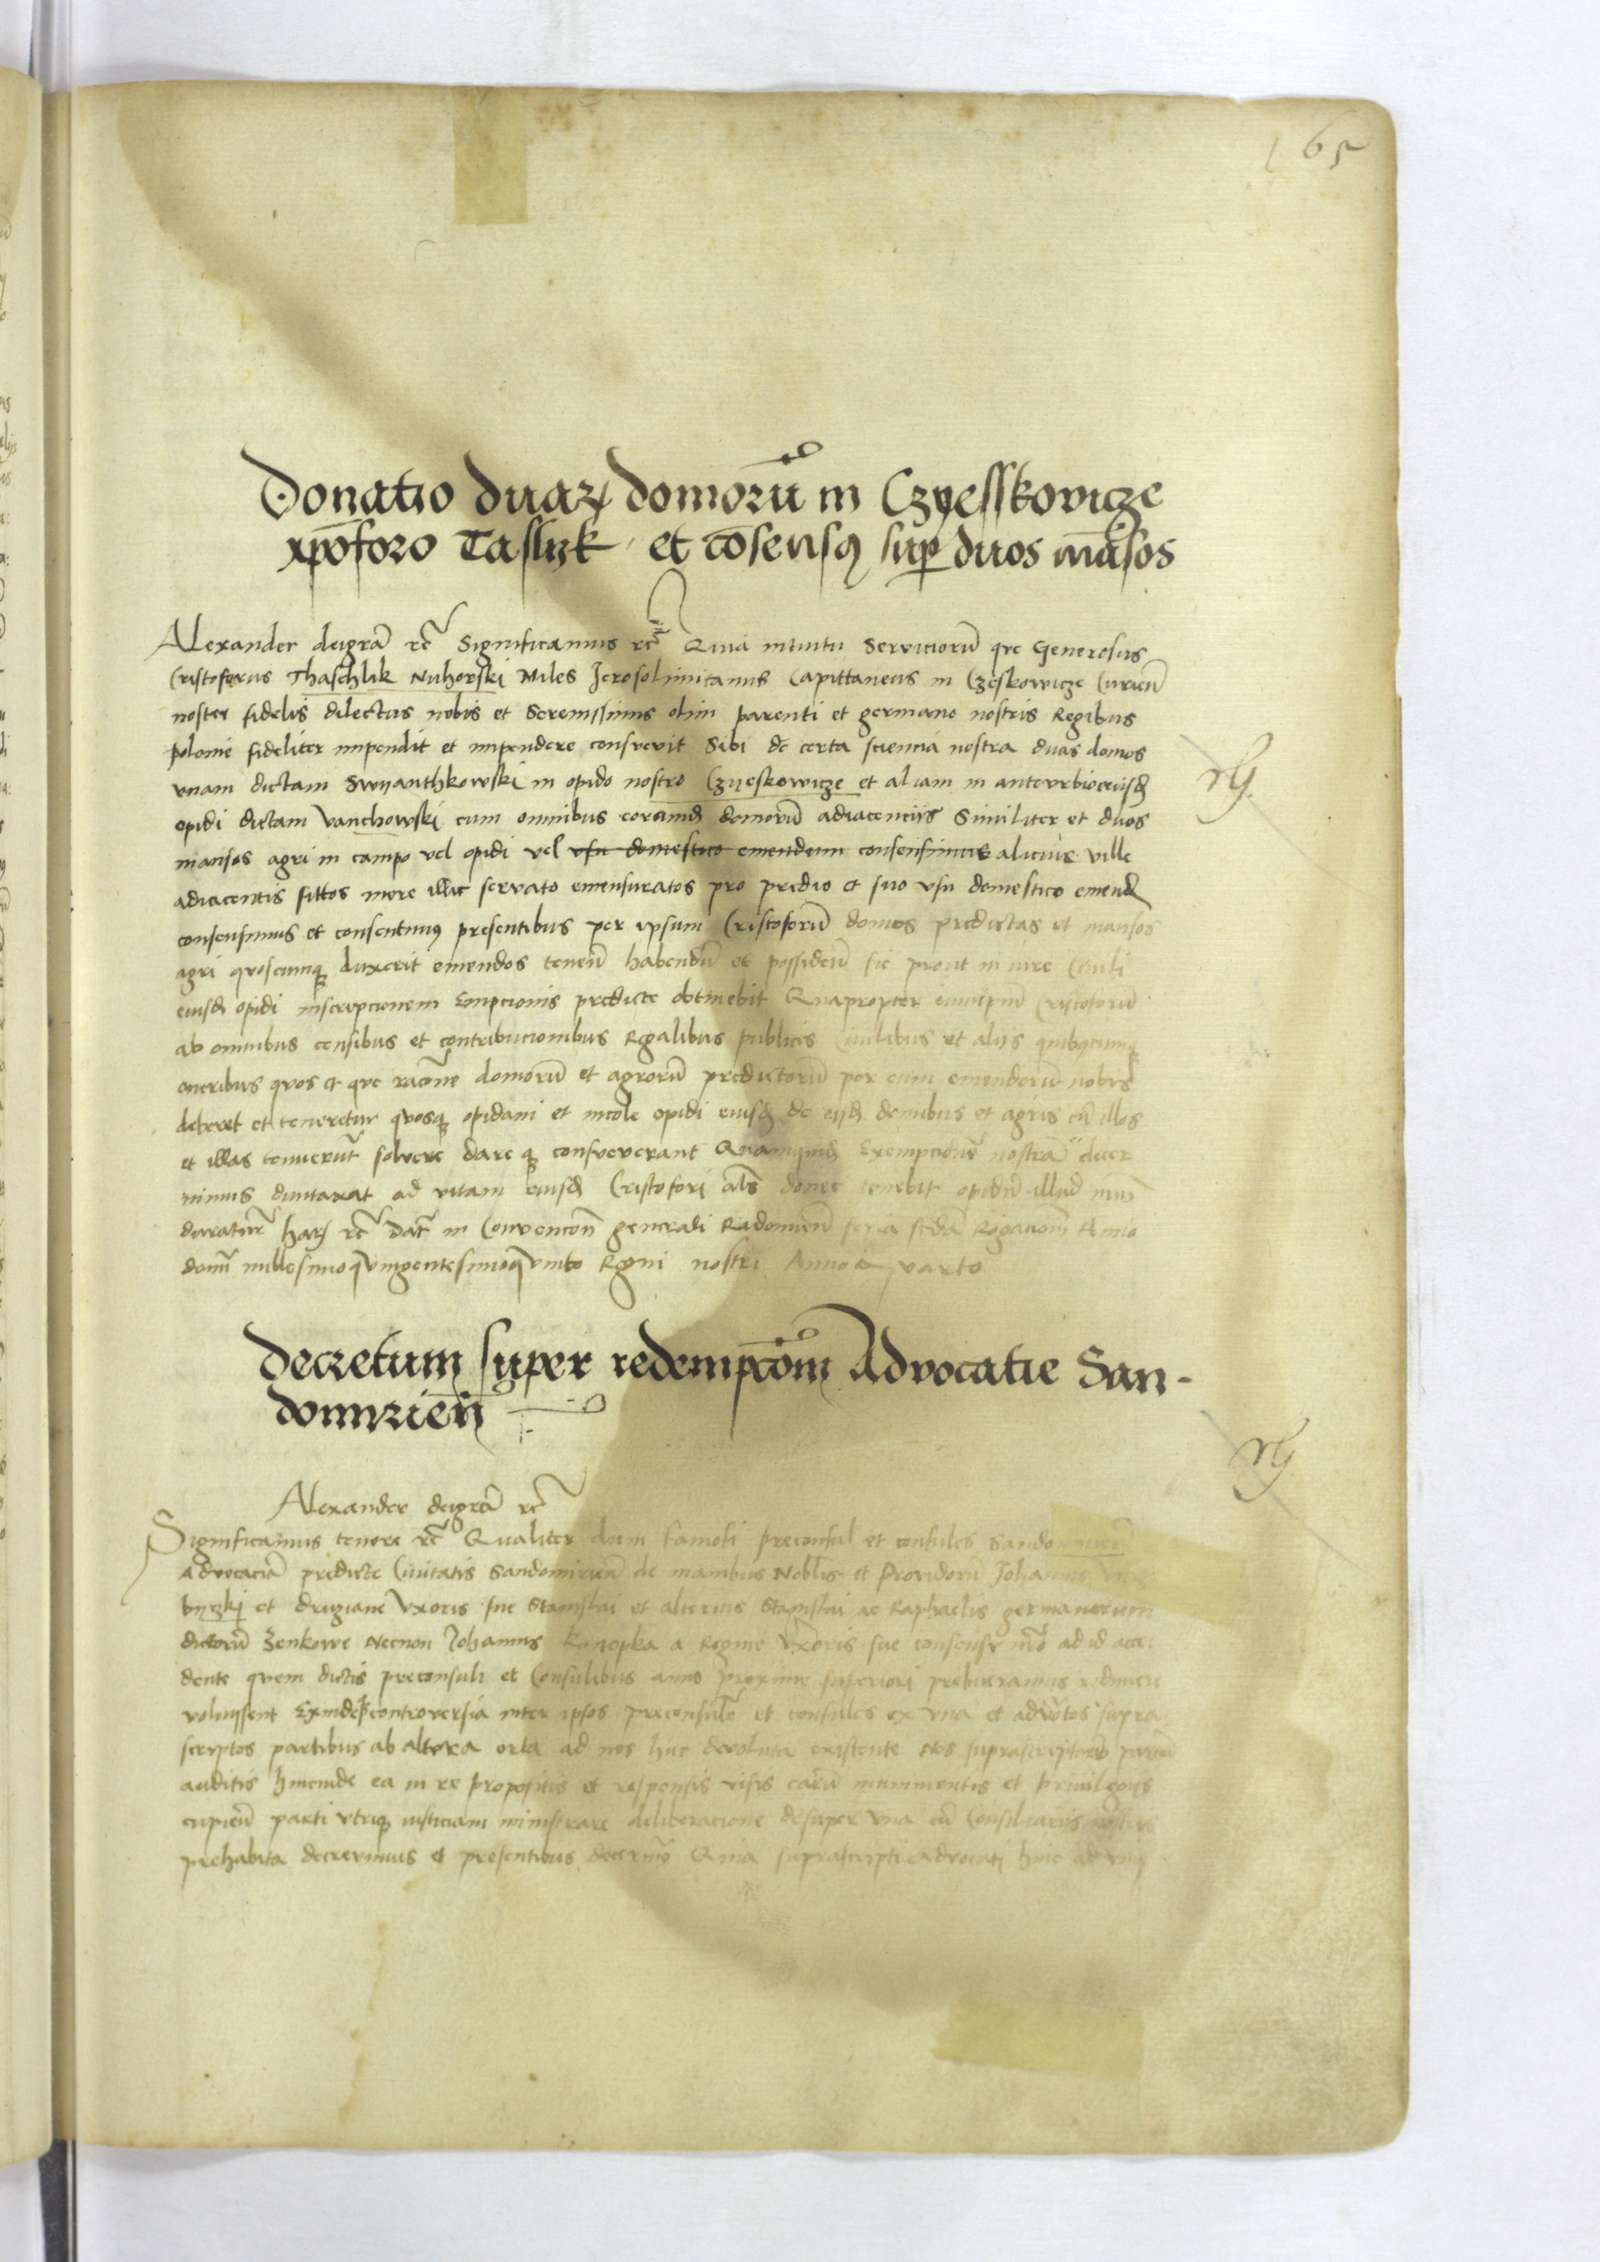 165
Donatio duarꝝ domorū in Czyesskovicze
xpōforo Taslyk et cōsensꝯ suꝑ duos māsos
Alexander deigrā rc̄ Significamus rc̄ Quia intuitu Serviciorū que Generosus
Cristoferus Thaschlik Nuhorski Miles Jerosolimitanus Capittaneus in Czeskowicze Curien̄
noster fidelis dilectus nobis et Serenissimis olim parenti et germano nostris Regibus
polonie fideliter impendit et impendere consuevit Sibi de certa sciencia nostra duas domos
vnam dictam Swyanthkowski in opido nostro Czyeskowicze et aliam in anteurbio eiusdꝫ
opidi dictam Vanchowski cum omnibus eorumdꝫ domorū adiacenciis Similiter et duos
mansos agri in campo vel opidi vel vsu domestico emendum consensimus alicuius ville
adiacentis sittos more illic servato emensuratos pro predio et suo vsu domestico emendꝫ
consensimus et consentimꝯ presentibus per ipsum Cristoforū domos predictas et mansos
agri quoscumqꝫ duxerit emendos tenen̄ habendū et possiden̄ sic prout in iure Civili
eiusdꝫ opidi inscripcionem Empcionis predicte obtinebit Quapropter Cristoforū
ab omnibus censibus et contribucionibus Regalibus publicis Civilibus et aliis quibꝯcumqꝫ
oneribus quos et que racōne domorū et agrorū predictorū per eum emendorū nobis
deberet et teneretur quosqꝫ opidani et incole opidi eiusdꝫ de eisdꝫ domibus et agris cū illos
et illas tenuerūt solvere dare qꝫ consueverant Quamquidꝫ Exempcionē nostrā decer
nimus duntaxat ad vitam eiusdꝫ Cristofori als̄ donec tenebit opidū illud
duraturā harꝫ rc̄ Dat̄ in Convencōn̄ generali Radomien̄ feria scdā Rogacionū Anno
domī millesimoquingentesimoquinto Regni nostri Anno quarto
Decretum super redempcōm̄ Advocatie San-
domirien̄
Alexander deigrā rc̄
Significamus tenore rc̄ Qualiter dum famosi preconsul et consules Sandomirien̄
advocaciā predicte Civitatis Sandomirien̄ de manibus Nobilis et Providorū Johannis
et druziane Vxoris sue Stanislai et alterius Stanislai ac Raphaelis germanorum
dictorū Zenkowe Necnon Johannis Konopka a Regine Vxoris sue consensu nrō ad id acce
dente quem dictis preconsuli et Consulibus anno proxime superiori prebueramus redimere
voluissent Exindeqꝫ controversia inter ipsos preconsulē et consules ex vna et advōtos supra
scriptos partibus ab altera orta ad nos huc devoluta existente Nos suprascriptarū parciū
auditis hincinde ea in re propositis et responsis visis earū munimentis et privilegiis
cupien̄ parti vtriqꝫ iusticiam ministrare deliberacione desuper vna cū Consiliariis nostris
prehabita decrevimus et presentibus decernimꝯ Quia suprascripti advocati